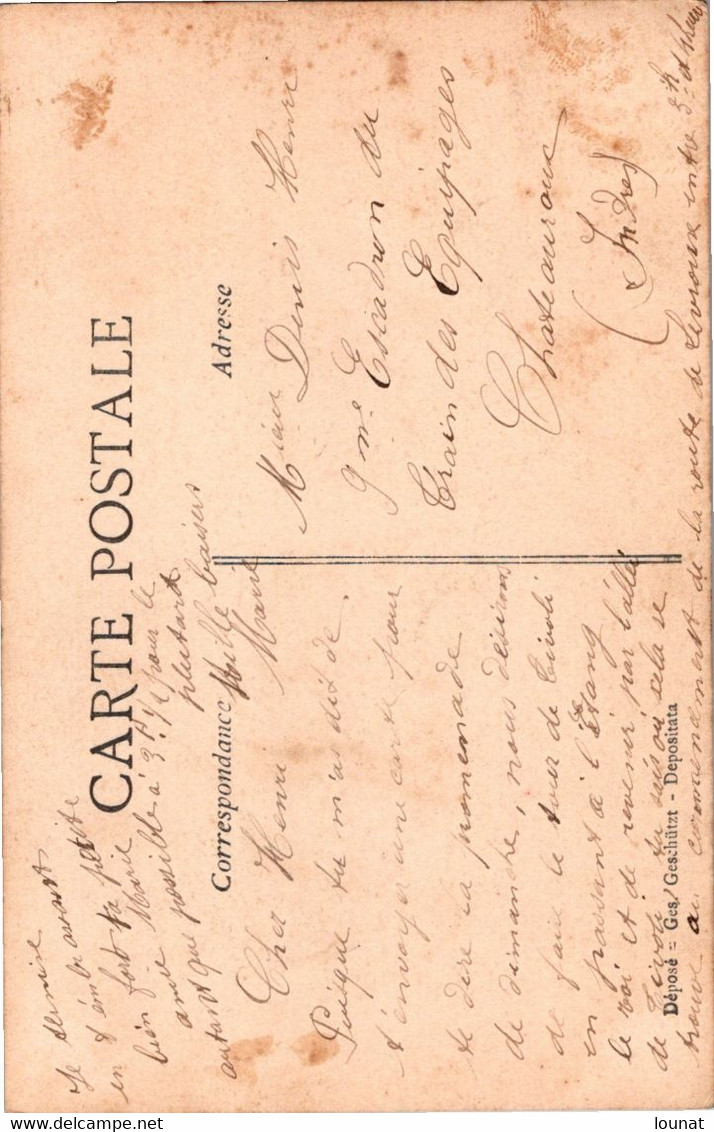 CARTE POSTALE
Correspondance
Adresse
Cher Henri
Puisque tu m'as dit de
t'envoyer une carte pour
te dire la promenade
de dimanche, nous désirons
de faire le tour de Tivoli
en passant à l'Etang
le roi et de revenir par l'allée
de Tivoli tu sais où cela se
trouve au commencement de la route de Levroux entre 3h et
bien possible à 3h 1/4 pour le
autant que possible plutard
Je termine
en t'embrassant
bien fort ta petite
amie Marie
Mille baisers
Marie
Denis Henri
9me Escadron du
Train des Equipages
Chateauroux
(Indre)
Déposé = Ges. Geschützt - Depositata
www.delcampe.net
lounat